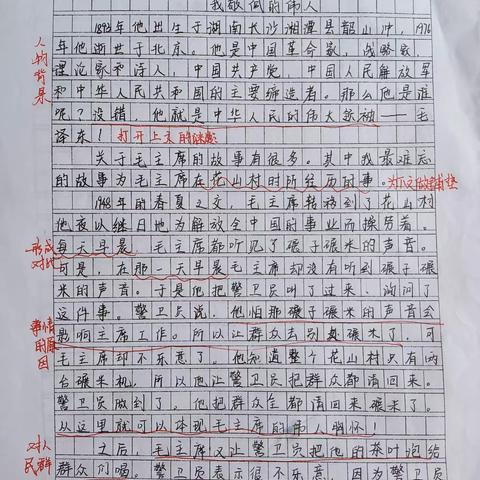 我敬佩的伟人
1893年他出生于湖南长沙湘潭县韶山冲，1976
年他逝世于北京。他是中国革命家，战略家，
理论家和诗人，中国共产党，中国人民解放军
和中华人民共和国的主要缔造者。那么他是谁
呢？没错，他就是中华人民的伟大领袖——毛
泽东！打开上文的谜底
关于毛主席的故事有很多。其中我最难忘
的故事为毛主席在花山村时所经历的事。为下文做铺垫
1948年的春夏之交，毛主席转移到了花山村
他夜以继日地为解放全中国的事业而操劳着。
每天早晨，毛主席都听见了碾子碾米的声音。
可是，在那一天早晨毛主席却没有听到碾子碾
米的声音。于是他把警卫员叫了过来，询问了
这件事。警卫员说，他怕那碾子碾米的声音会
影响主席工作。所以让群众去别处碾米了，可
毛主席却不乐意了。他知道整个花山村只有两
台碾米机，所以他让警卫员把群众都请回来。
警卫员做到了。他把群众全都请回来碾米了。
从这里就可以体现毛主席的伟人胸怀！
之后，毛主席又让警卫员把他的茶叶泡给
群众们喝。警卫员表示很不乐意，因为警卫员
人物背景
形成对比
事情的原因
对人民群